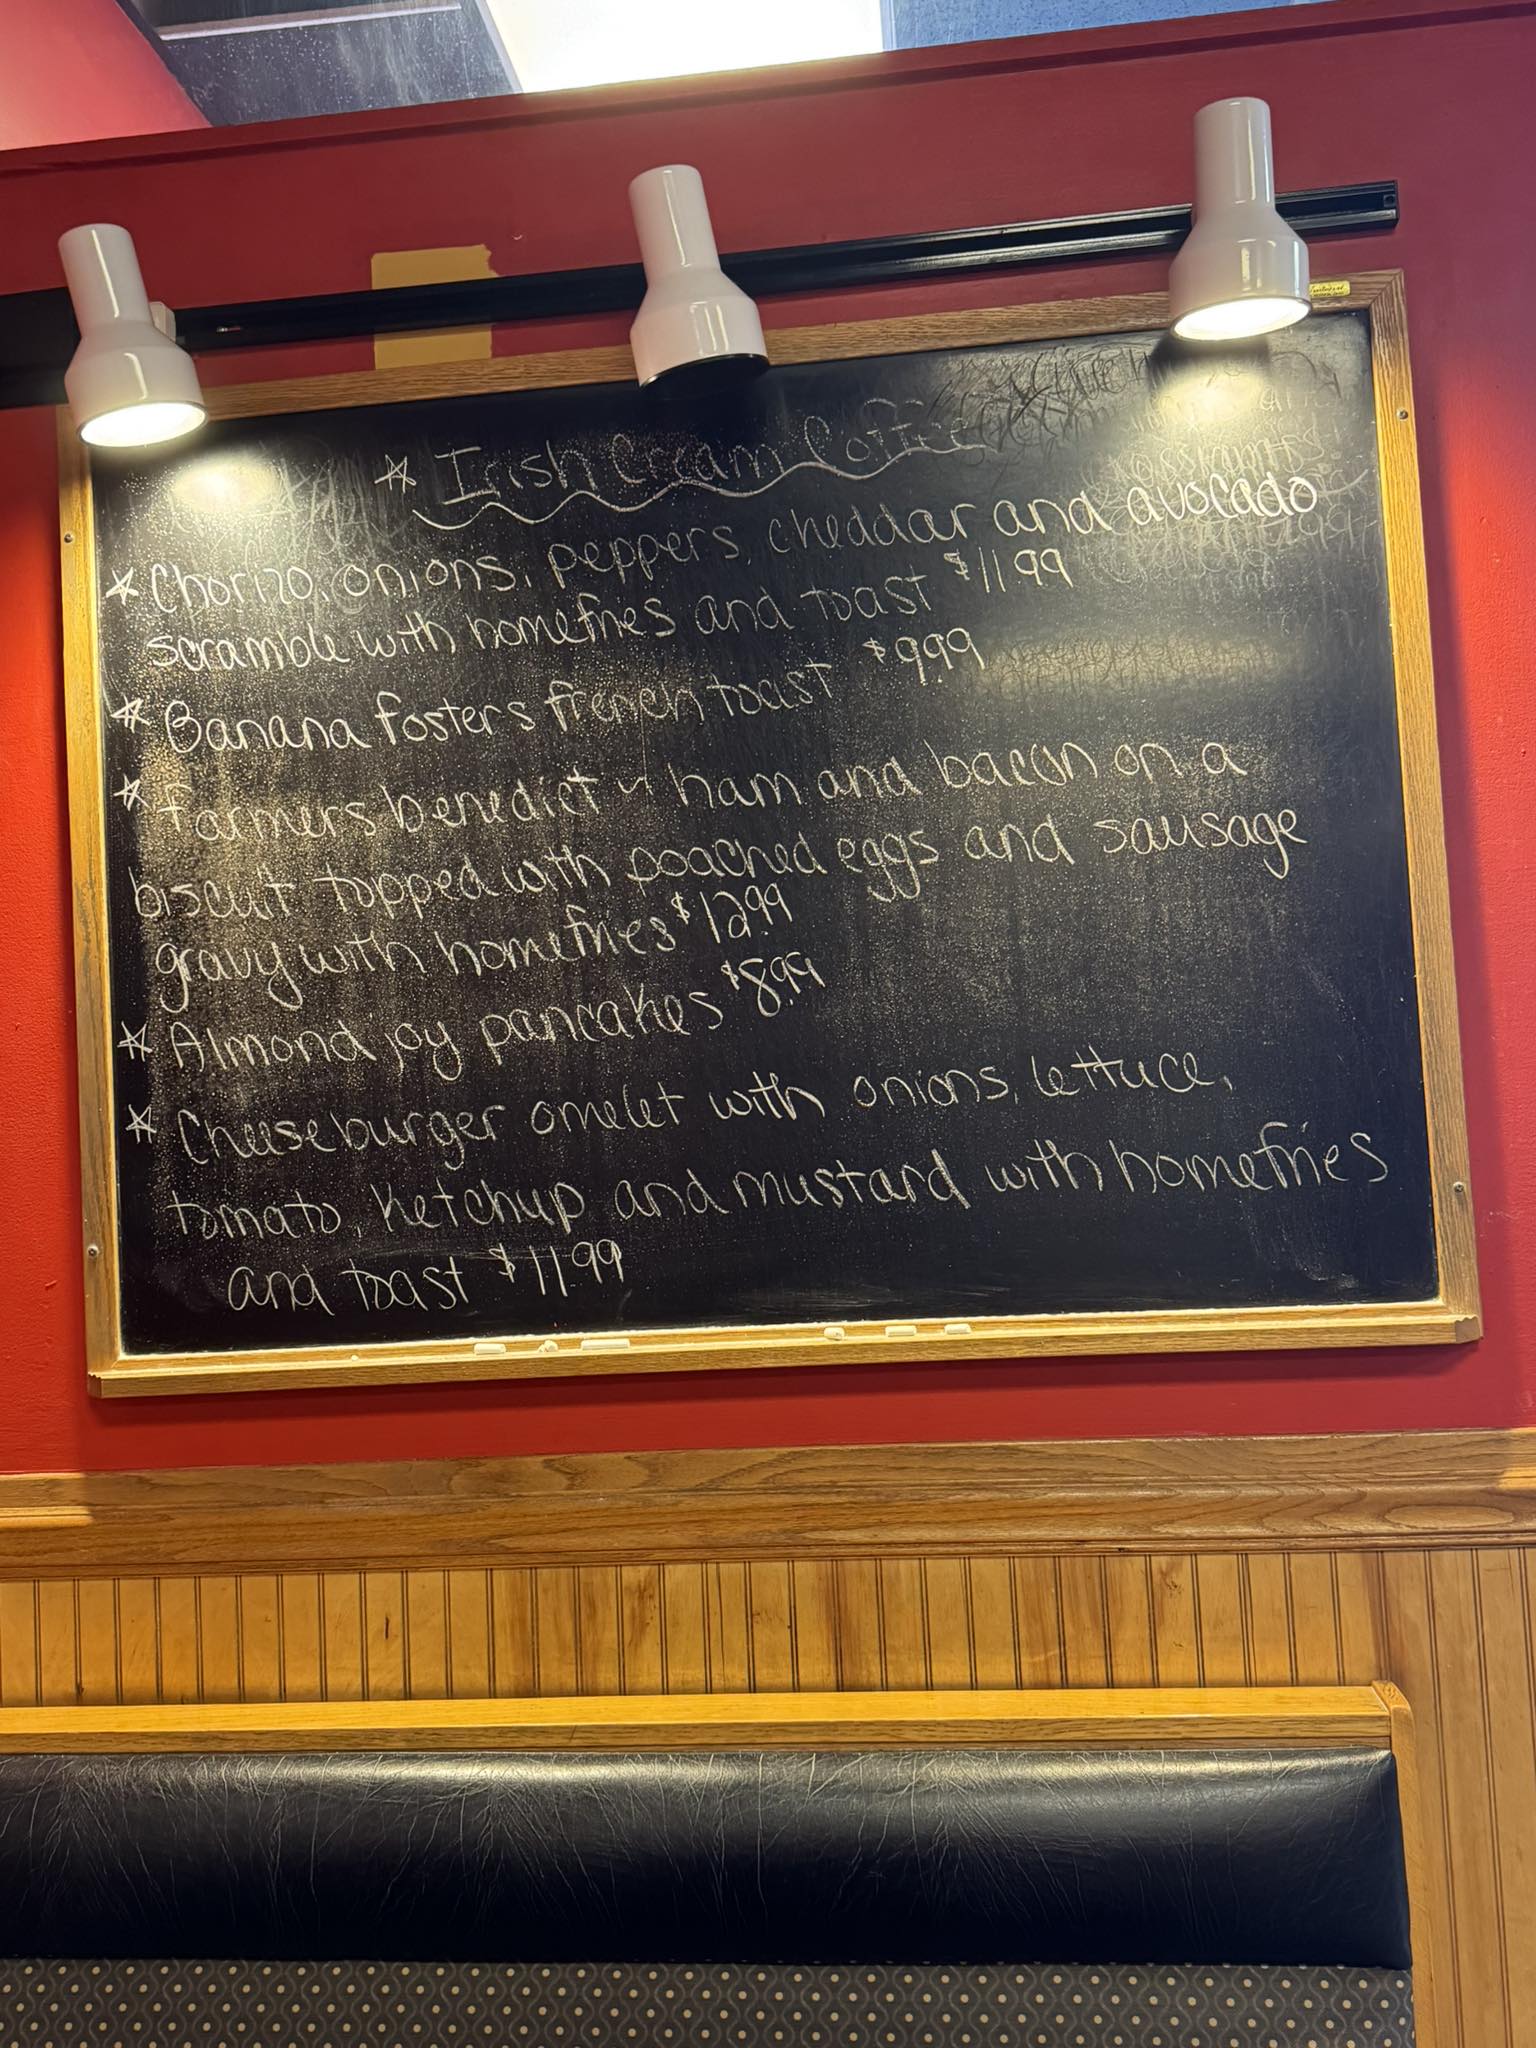 ☆ Irish Cream Coffee
☆ Chorizo, onions, peppers, cheddar and avocado
scramble with homefries and toast $11.99
☆ Banana fosters french toast $9.99
☆ Farmers benedict w/ ham and bacon on a
biscuit topped with poached eggs and sausage
gravy with homefries $12.99
☆ Almond joy pancakes $8.99
☆ Cheeseburger omelet with onions, lettuce,
tomato, ketchup and mustard with homefries
and toast $11.99